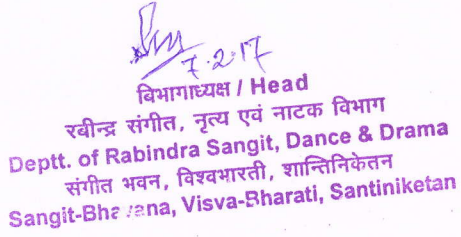 7.2.17
बिभागाध्यक्ष / Head
रबीन्द्र संगीत, नृत्य एवं नाटक विभाग
Deptt. of Rabindra Sangit, Dance & Drama
संगीत भवन, विश्वभारती, शान्तिनिकेतन
Sangit-Bhavana, Visva-Bharati, Santiniketan